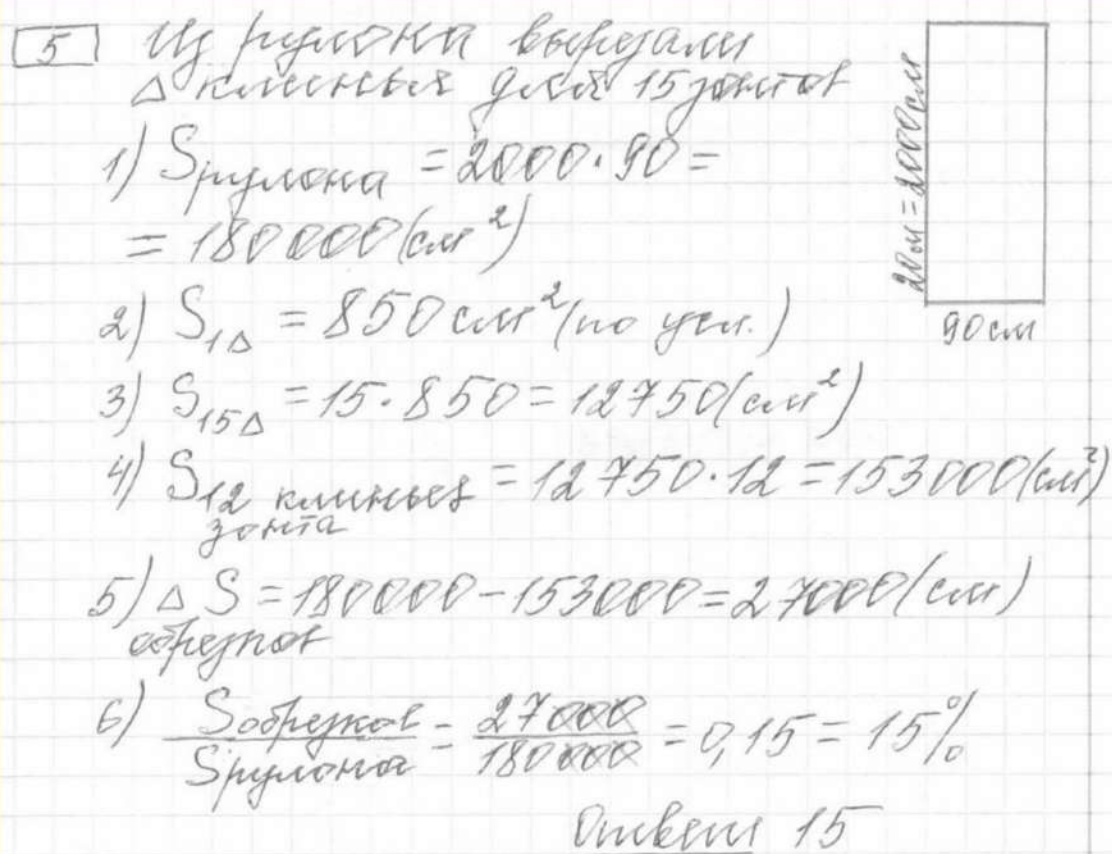 5 Из рулона вырезали
△ клинья для 15 зонтов
20м = 2000см
90 см
1) Sрулона = 2000·90=
= 180000(см²)
2) S1△ = 850 см² (по усл.)
3) S15△ = 15·850 = 12750(см²)
4) S12 клиньев зонта = 12750·12 = 153000(см²)
5) △ S = 180000 - 153000 = 27000(см)
обрезков
6) Sобрезков / Sрулона = 27000 / 180000 = 0,15 = 15%
Ответ 15